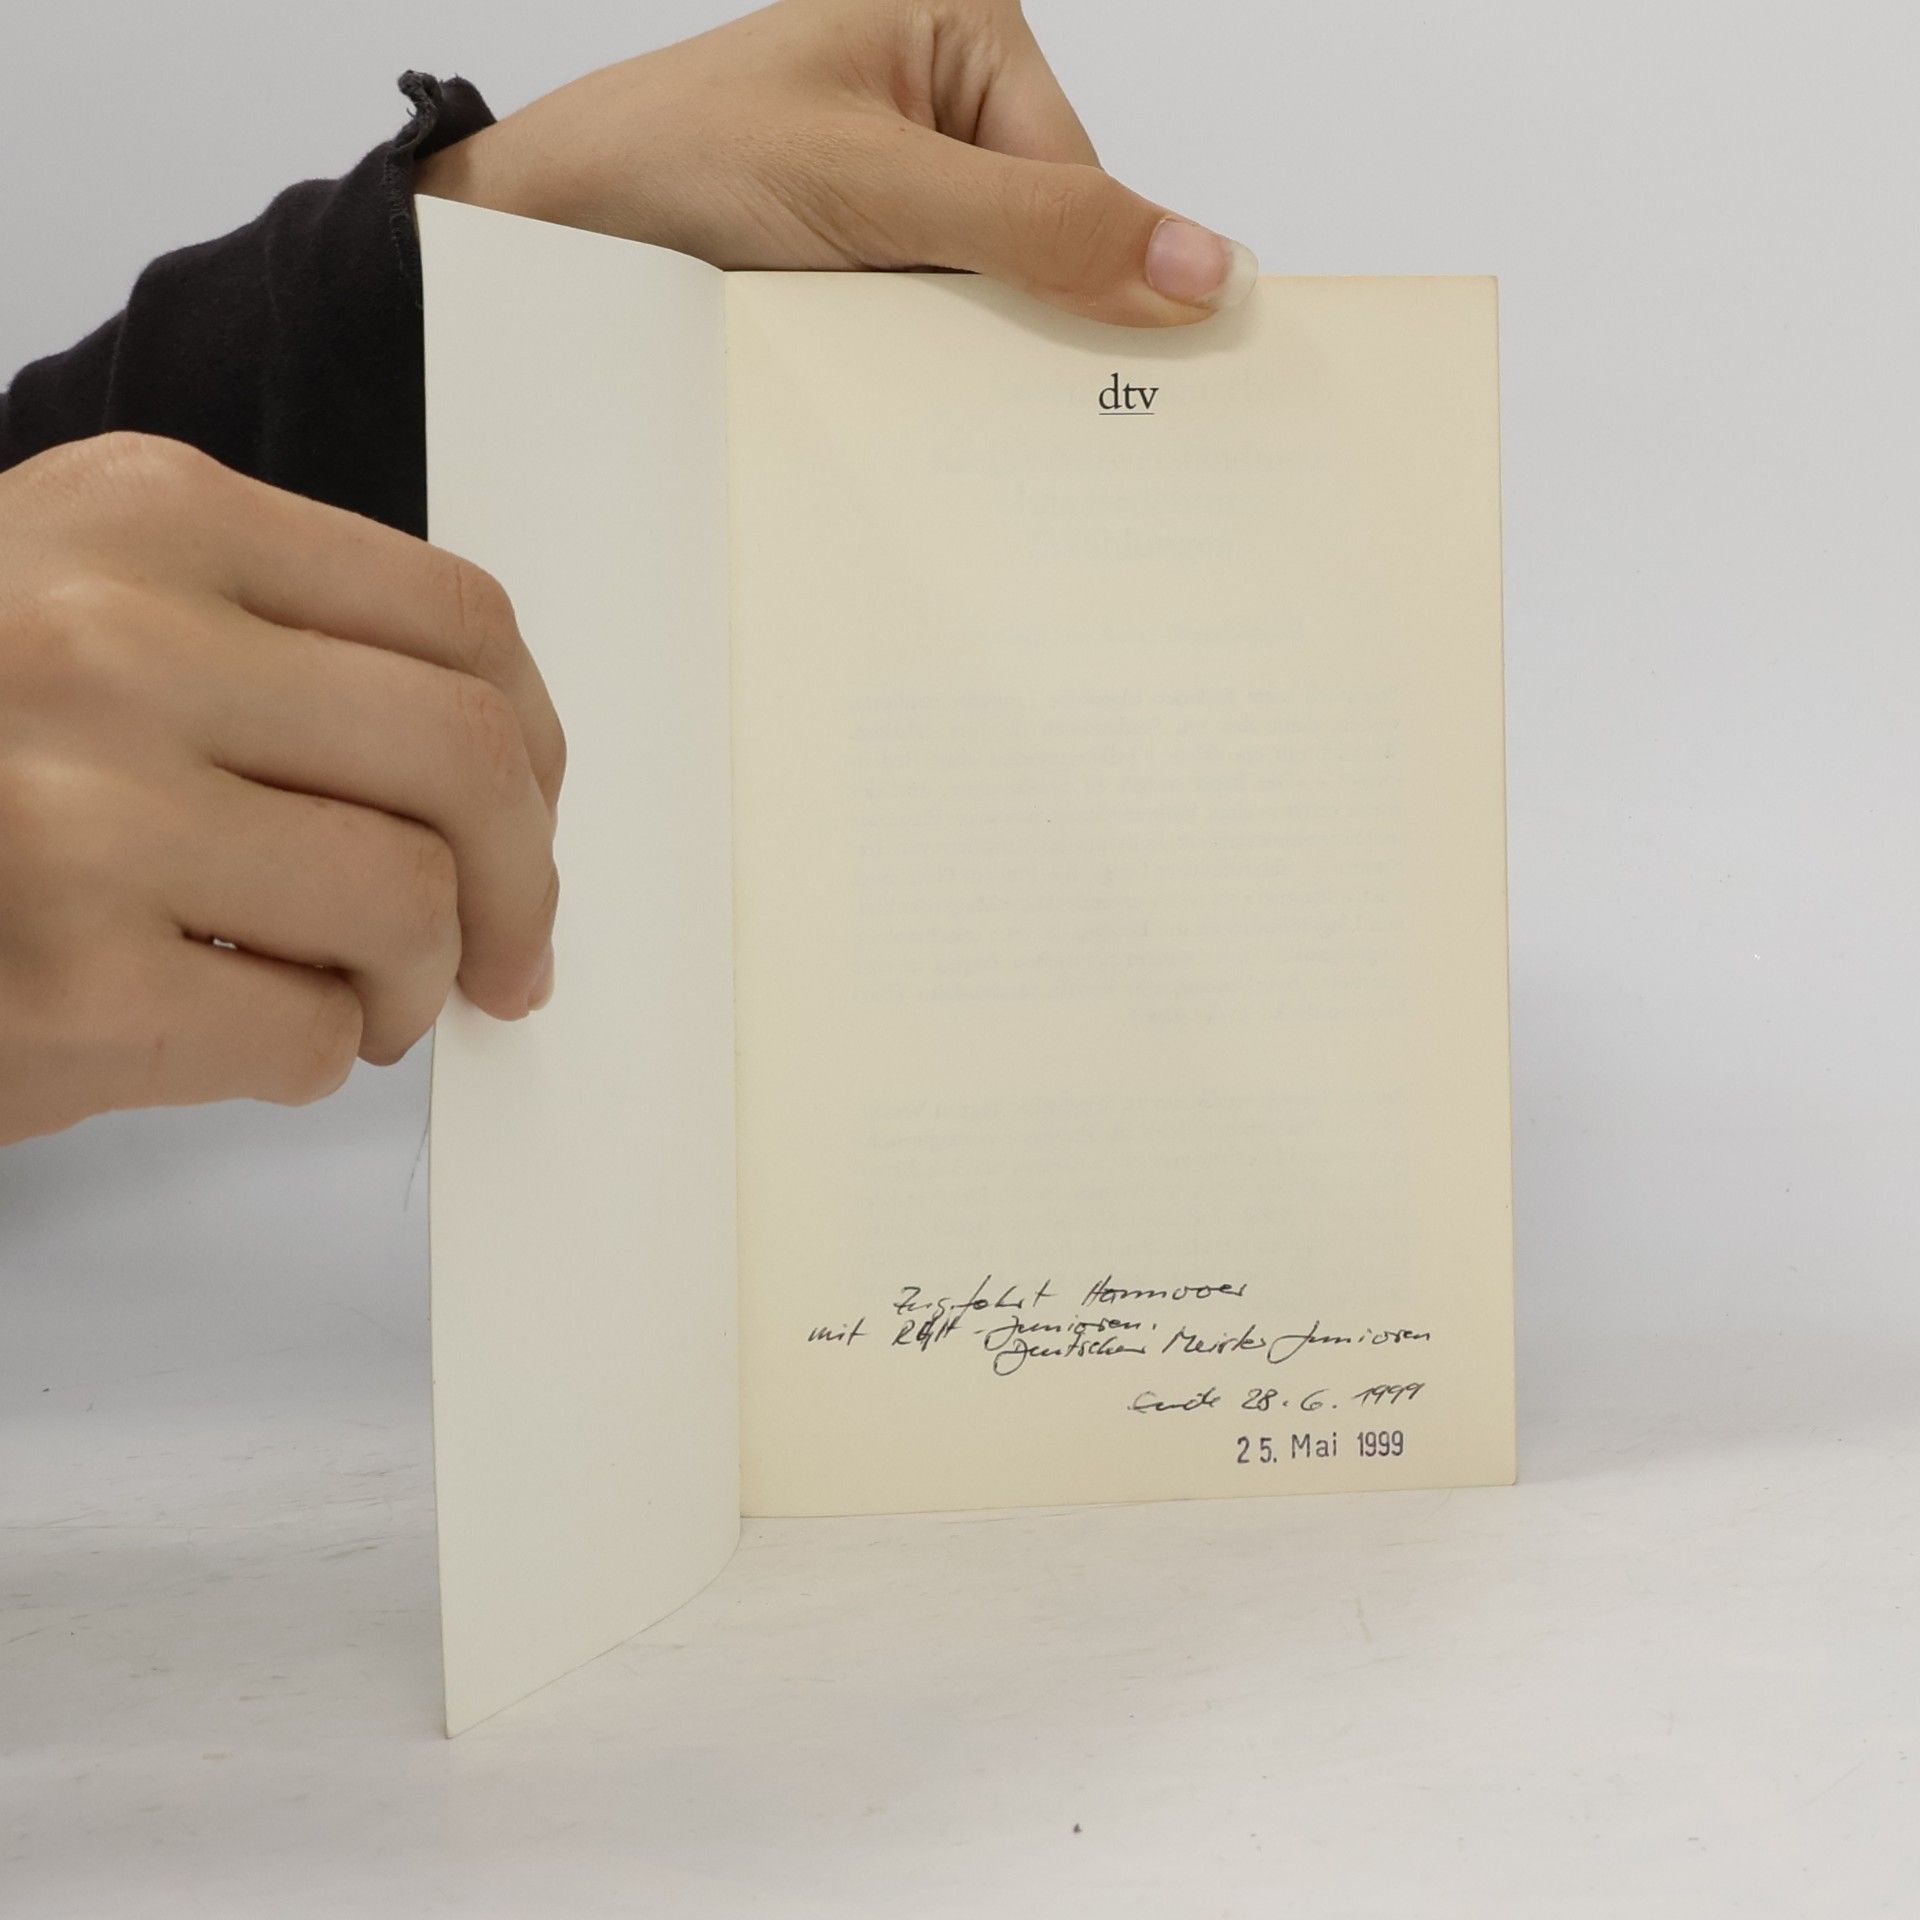 dtv
Zugfahrt Hannover
mit RGH - Junioren.
Deutscher Meister Junioren
Ende 28.6.1999
25. Mai 1999